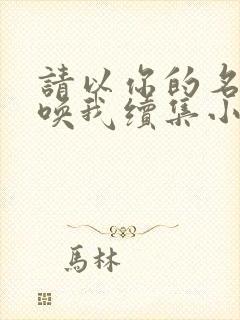 請以你的名
喚我續集小
馬林